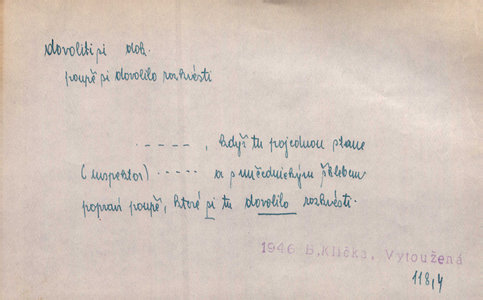 dovoliti si dok.
poupě si dovolilo rozkvésti
- - - - , když tu pojednou stane
(inspektor) ····· a s mučednickým šklebem
popraví poupě, které si tu dovolilo rozkvésti.
1946 B.Klička, Vytoužená
118,4